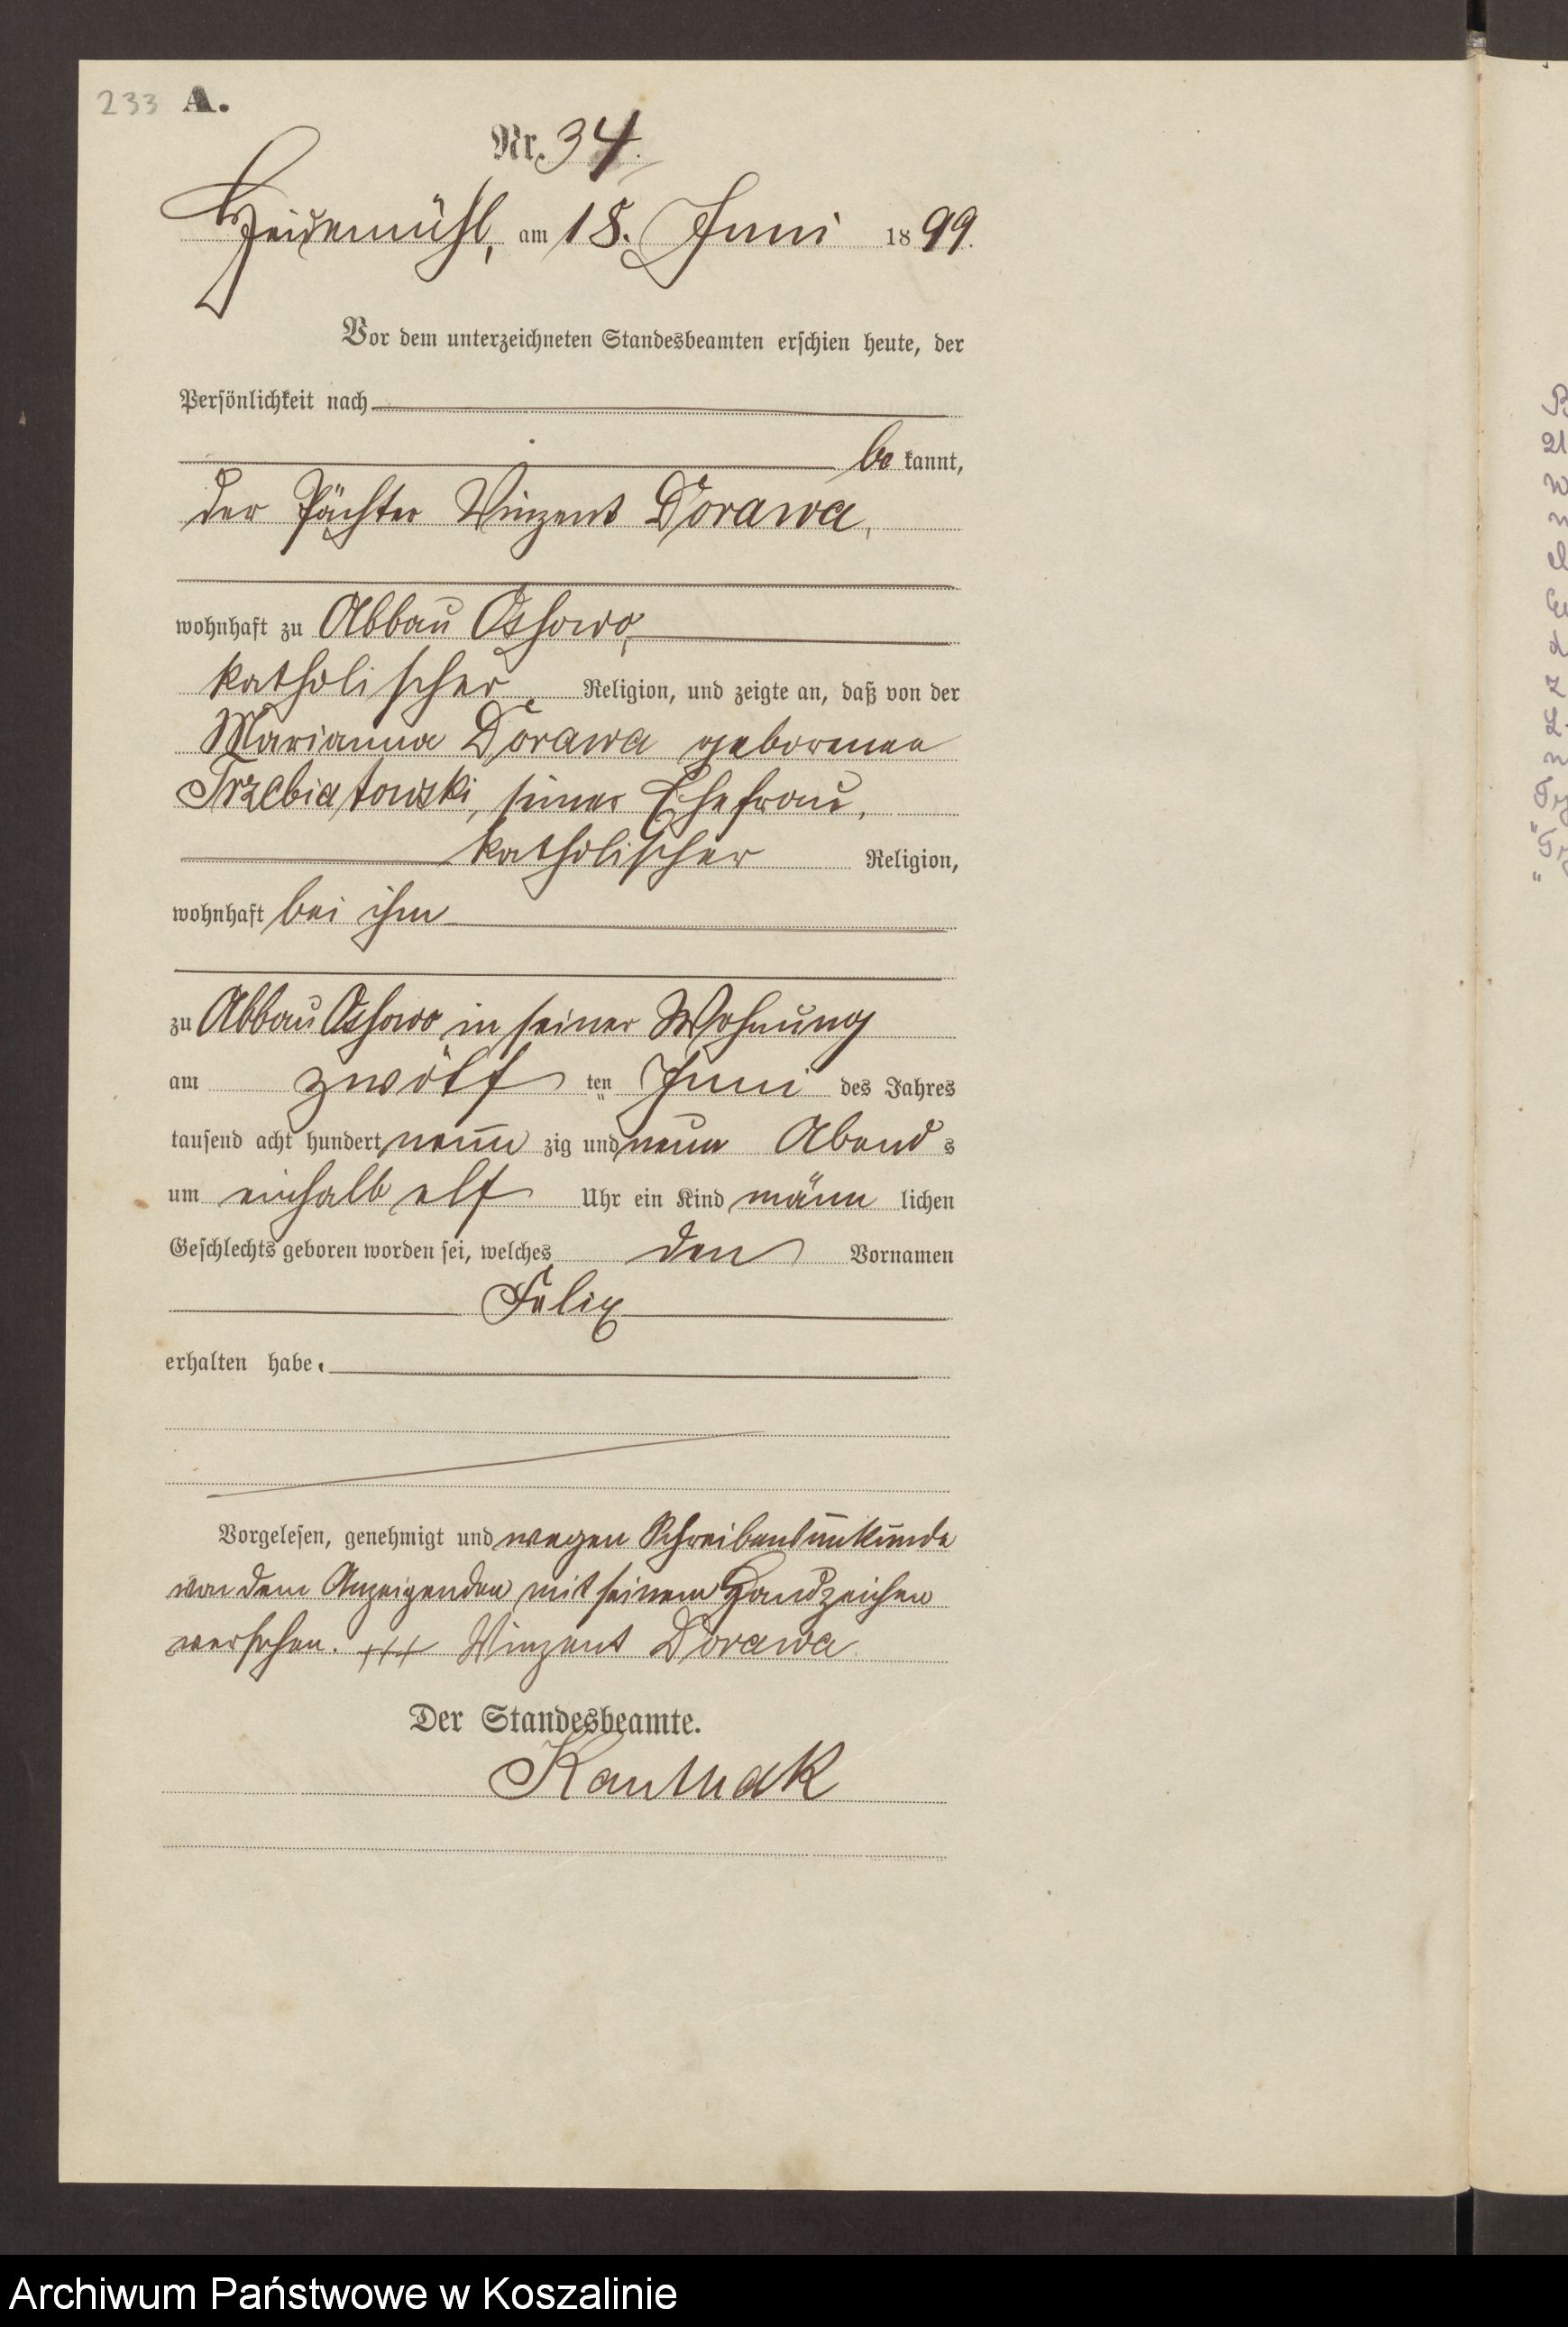 233 A.
Nr. 34.
Heidemühl, am 18. Juni 1899.
Vor dem unterzeichneten Standesbeamten erschien heute, der
Persönlichkeit nach
be kannt,
der Pächter Vinzent Dorawa,
wohnhaft zu Abbau Ossowo,
katholischer Religion, und zeigte an, daß von der
Marianna Dorawa geborenen
Trzebiatowski, seiner Ehefrau,
katholischer Religion,
wohnhaft bei ihm
zu Abbau Ossowo in seiner Wohnung
am zwölf ten Juni des Jahres
tausend acht hundert neun zig und neun Abend s
um einhalb elf Uhr ein Kind männ lichen
Geschlechts geboren worden sei, welches den Vornamen
Felix
erhalten habe.
Vorgelesen, genehmigt und wegen Schreibensunkunde
von dem Anzeigenden mit seinem Handzeichen
versehen. +++ Vinzent Dorawa.
Der Standesbeamte.
Archiwum Państwowe w Koszalinie